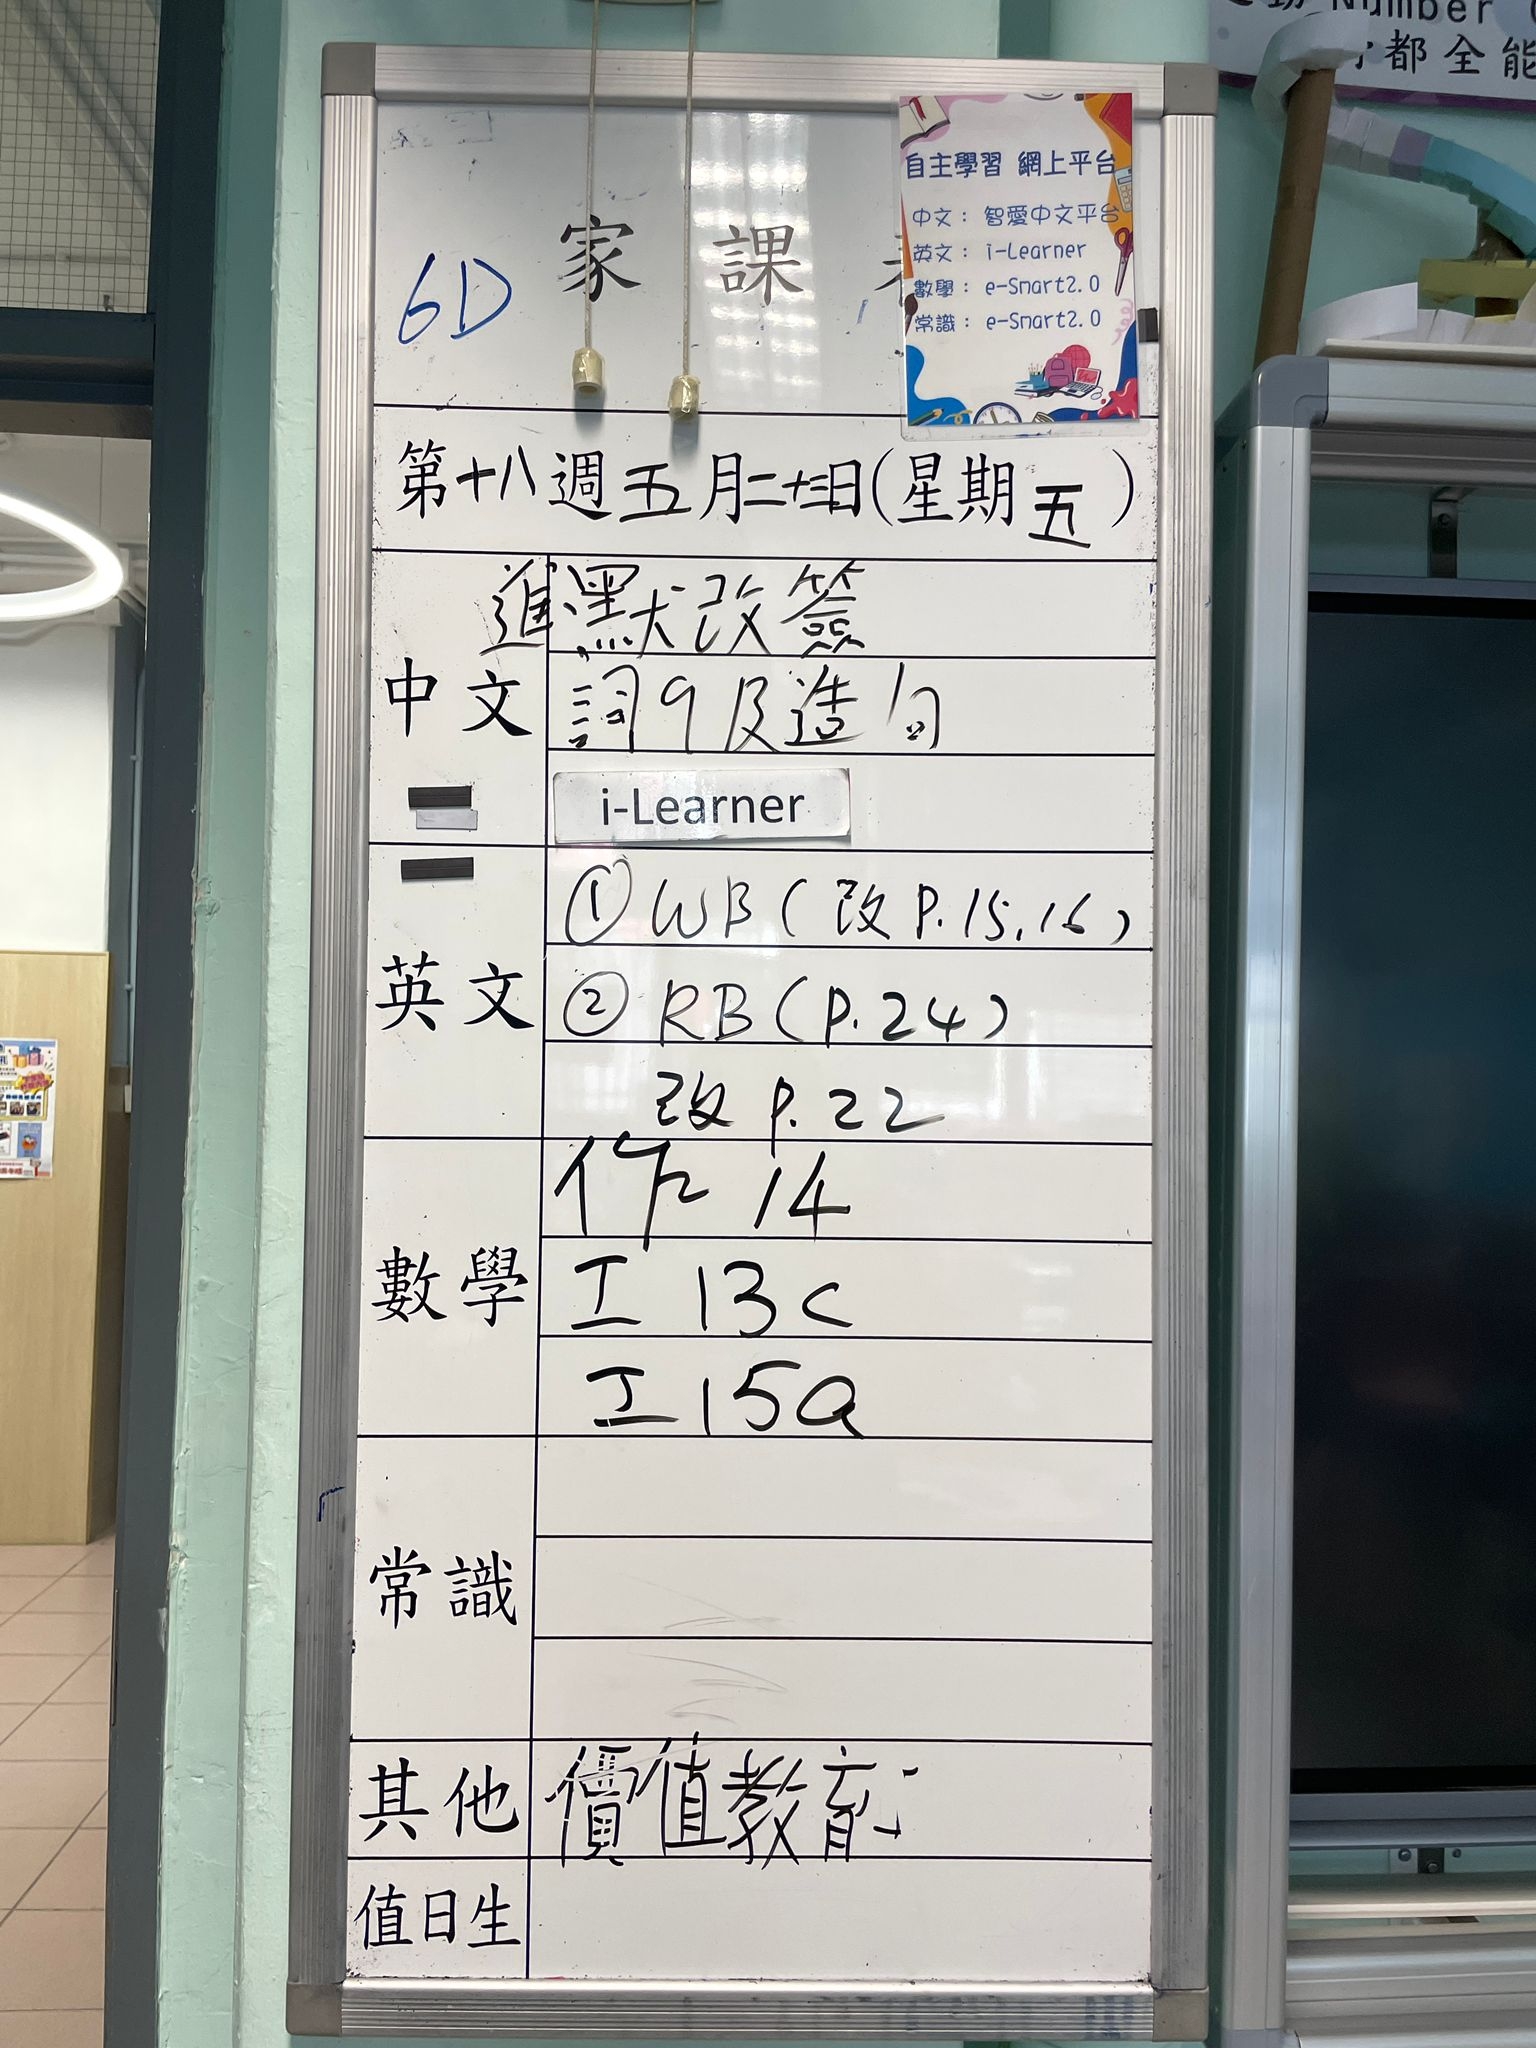 Number
都全能
家課
6D
自主學習 網上平台
中文：智愛中文平台
英文：i-Learner
數學：e-Smart2.0
常識：e-Smart2.0
第十八週五月二十三日(星期五)
中文
進默改簽
詞9及造句
i-Learner
英文
①WB(改P.15,16)
②RB(P.24)
改P.22
數學
作14
工13c
工15a
常識
其他
價值教育
值日生